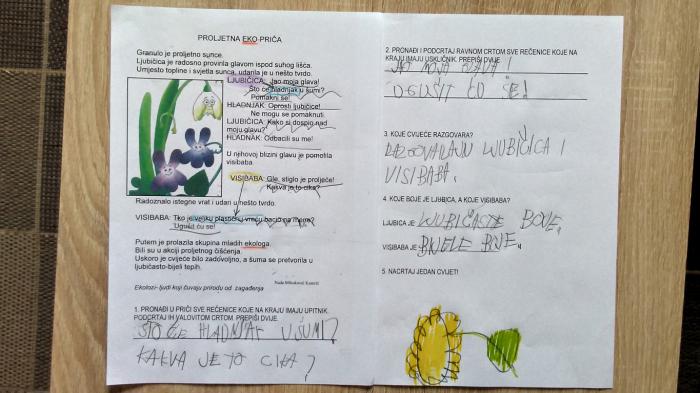 PROLJETNA EKO-PRIČA
Granulo je proljetno sunce.
Ljubičica je radosno provirila glavom ispod suhog lišća.
Umjesto topline i svjetla sunca, udarila je u nešto tvrdo.
LJUBIČICA: Jao moja glava!
Što će hladnjak u šumi?
Pomakni se!
HLADNJAK: Oprosti ljubičice!
Ne mogu se pomaknuti.
LJUBIČICA: Kako si dospio nad
moju glavu?
HLADNAK: Odbacili su me!
U njihovoj blizini glavu je pomolila
visibaba.
VISIBABA: Gle, stiglo je proljeće!
Kakva je to cika?
Radoznalo istegne vrat i udari u nešto tvrdo.
VISIBABA: Tko je veliku plastičnu vreću bacio na mene?
Ugušit ću se!
Putem je prolazila skupina mladih ekologa.
Bili su u akciji proljetnog čišćenja.
Uskoro je cvijeće bilo zadovoljno, a šuma se pretvorila u
ljubičasto-bijeli tepih.
Ekolozi- ljudi koji čuvaju prirodu od zagađenja
1. PRONAĐI U PRIČI SVE REČENICE KOJE NA KRAJU IMAJU UPITNIK.
PODCRTAJ IH VALOVITOM CRTOM. PREPIŠI DVIJE.
ŠTO ĆE HLADNJAK U ŠUMI?
KAKVA JE TO CIKA?
2. PRONAĐI I PODCRTAJ RAVNOM CRTOM SVE REČENICE KOJE NA
KRAJU IMAJU USKLIČNIK. PREPIŠI DVIJE.
JAO MOJA GLAVA!
UGUŠIT ĆU SE!
3. KOJE CVIJEĆE RAZGOVARA?
LJUBIČICA I
VISIBABA.
4. KOJE BOJE JE LJUBICA, A KOJE VISIBABA?
LJUBICA JE LJUBIČASTE BOJE.
VISIBABA JE BIJELE BOJE.
5. NACRTAJ JEDAN CVIJET!